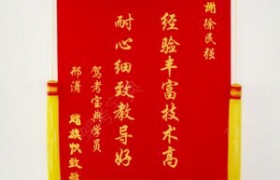 谢徐民强
经验丰富技术高
耐心细致教导好
驾考宝典学员
邢潇
赠旗恭致敬